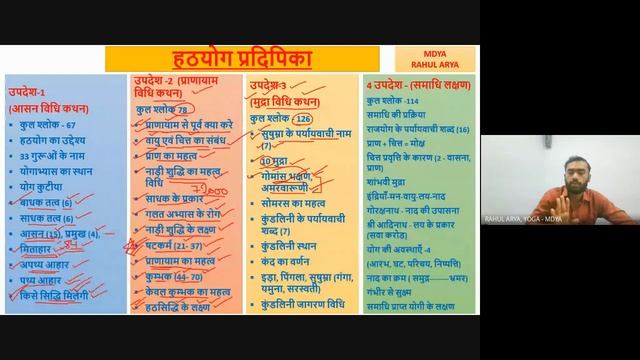 हठयोग प्रदिपिका
MDYA
RAHUL ARYA
उपदेश-1
(आसन विधि कथन)
कुल श्लोक - 67
हठयोग का उद्देश्य
33 गुरूओं के नाम
योगाभ्यास का स्थान
योग कुटीया
बाधक तत्व (6)
साधक तत्व (6)
आसन (15), प्रमुख (4)
मिताहार 84
अपथ्य आहार
पथ्य आहार
किसे सिद्धि मिलेगी
उपदेश -2 (प्राणायाम
विधि कथन)
कुल श्लोक 78
प्राणायाम से पूर्व क्या करे
वायु एवं चित्त का संबंध
प्राण का महत्व
नाड़ी शुद्धि का महत्व
विधि 72000
साधक के प्रकार
गलत अभ्यास के रोग
नाड़ी शुद्धि के लक्षण
षटकर्म (21- 37)
प्राणायाम का महत्व
कुम्भक (44- 70)
केवल कुम्भक का महत्व
हठसिद्धि के लक्षण
उपदेश-3
(मुद्रा विधि कथन)
कुल श्लोक 126
सुषुम्ना के पर्यायवाची नाम
(7)
10 मुद्रा
गोमांस भक्षण,
अमरवारूणी
सोमरस का महत्व
कुंडलिनी के पर्यायवाची
शब्द (7)
कुंडलिनी स्थान
कंद का वर्णन
इड़ा, पिंगला, सुषुम्ना (गंगा,
यमुना, सरस्वती)
कुंडलिनी जागरण विधि
4 उपदेश - (समाधि लक्षण)
कुल श्लोक -114
समाधि की प्रक्रिया
राजयोग के पर्यायवाची शब्द (16)
प्राण + चित्त = मोक्ष
चित्त प्रवृत्ति के कारण (2 - वासना,
प्राण)
शांभवी मुद्रा
इंद्रियाँ-मन-वायु-लय-नाद
गोरक्षनाथ - नाद की उपासना
श्री आदिनाथ - लय के प्रकार
(सवा करोड)
योग की अवस्थाएँ -4
(आरंभ, घट, परिचय, निष्पत्ति)
नाद का क्रम ( समुद्र-------भ्रमर)
गंभीर से सुक्ष्म
समाधि प्राप्त योगी के लक्षण
RAHUL ARYA, YOGA - MDYA